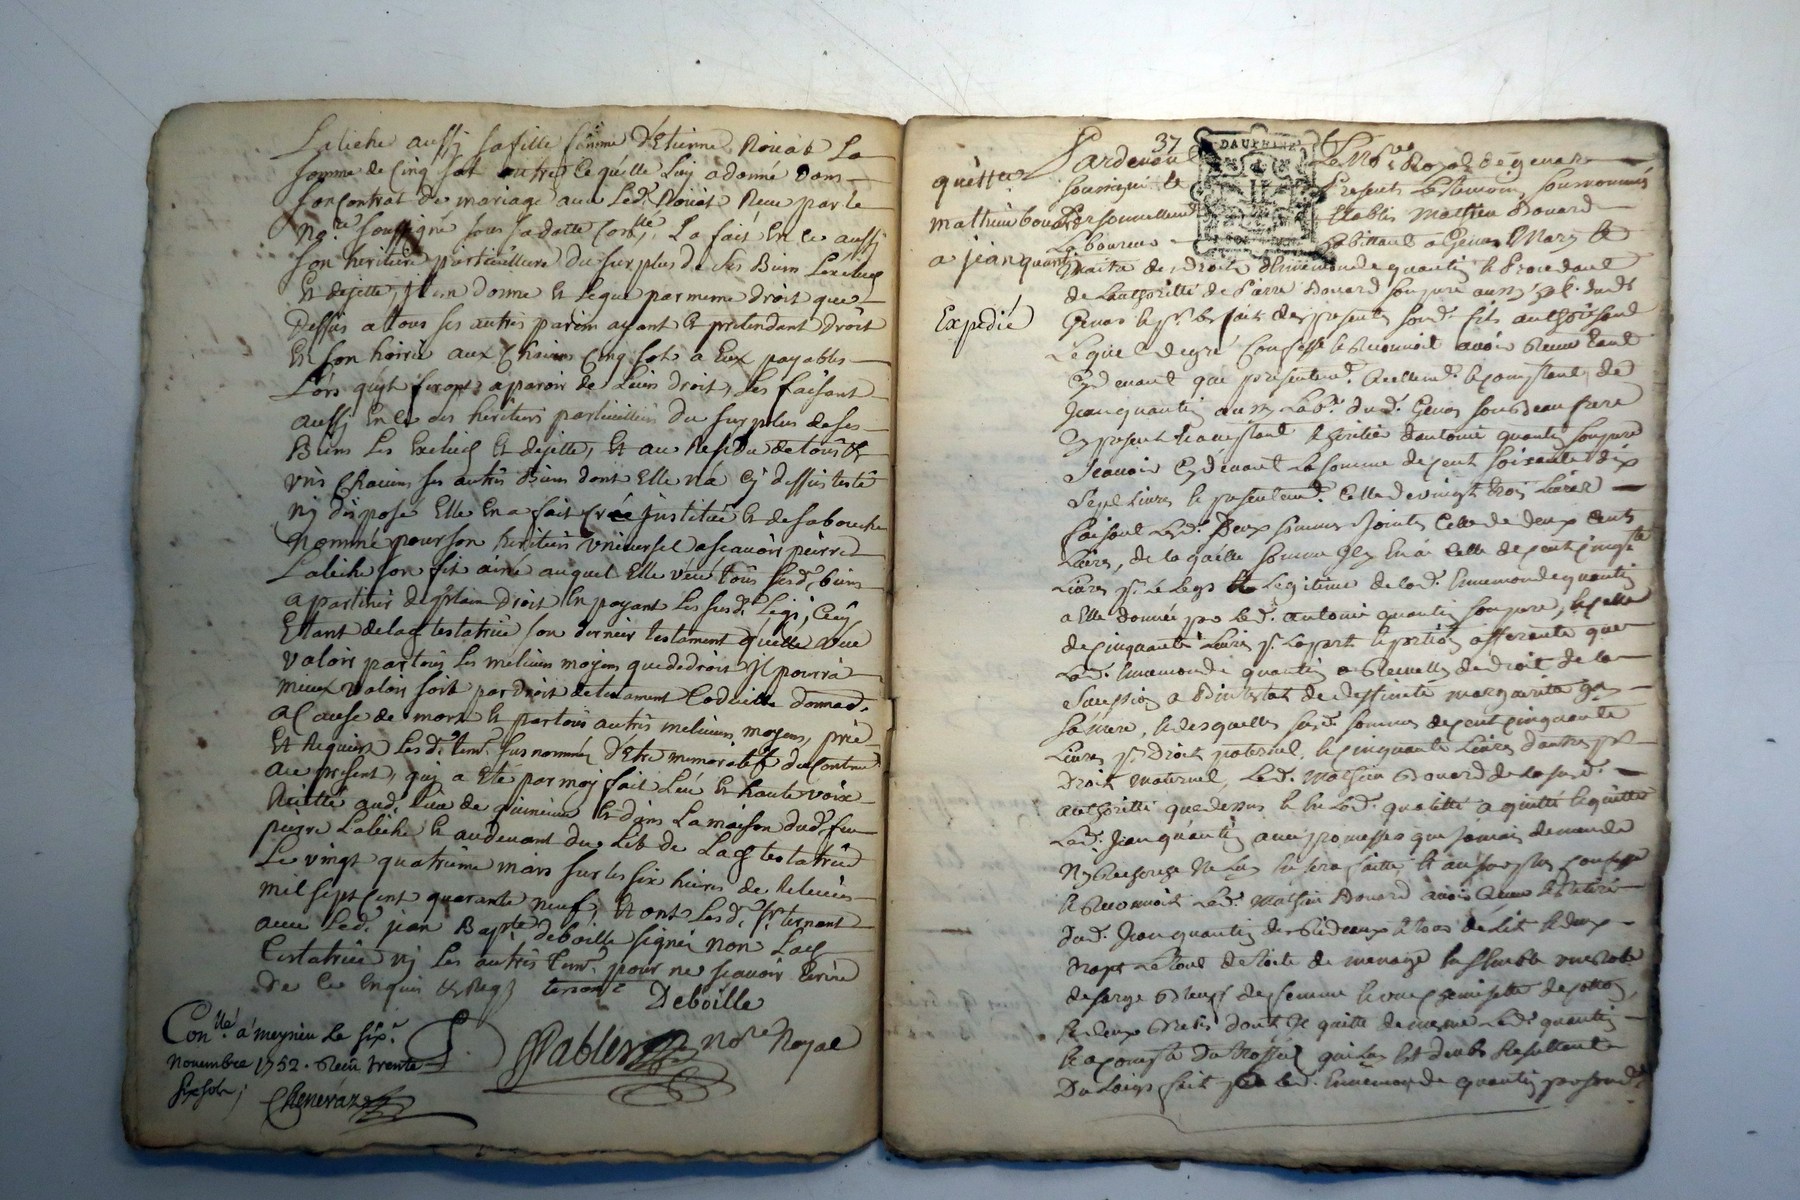 Laliche aussy sa fille femme d'Etienne Noüat La
somme de Cinq sols outre ce quelle luy a donné dans
son Contrat de mariage avec Led. Noüat Reçu par le
No.re soussigné sous sa datte Con.llé, La fait En ce aussy
son heritiere particulliere du surplus de ses Biens Lexclud
Et dejette, Item donne Et Legue par meme droit que
Dessus a tous ses autres parens ayant Et pretendant droit
Et son hoirie aux Chacuns Cinq sols a Eux payables
Lors quyls feront aparoir de Leurs droits, Les faisant
aussy En ce ses heritiers particulliers du surplus de ses
Biens Les Exclud Et dejette, Et au Residu de tous Et
uns Chacuns ses autres Biens dont Elle n'a cy dessus testé
Ny disposé Elle En a fait Créé institué Et de sa bouche
Nommé pour son heritier universel ascavoir pierre
Laliche son fils ainé auquel Elle veut tous sesd. biens
apartenir de plain droit En payant Les susd. Legs, Cecy
Etant de lad testatrice son dernier testament quelle veut
valoir par tous Les melieurs moyens que de droit Il pourra
mieux valoir soit par droit de testament Codicille donnaõn
a Cause de mort Et par tous autres melieurs moyens, prié
Et Requis Lesd. tem. susnommés d'Etre memoratif du Contenu
au present, quy a Eté par moy fait Leu Et haute voix
Recitté aud. lieu de Et dans La maison dud. feu
pierre Laliche Et audevant du Lit de Lad testatrice
Le vingt quatrieme mars sur les six heures de Relevée
mil sept Cent quarante neuf, Et ont Lesd. Sr. ternant
avec Led. jean Bapte deboille signé non Lad
testatrice ny Les autres tem. pour ne scavoir Ecrire
de Ce Enquis & Req.
Deboille
Pablen No.re Royal
Con.llé a meyrieu Le six.e
Novembre 1752. Reçu trente
six sols;
Chenevaz
37
DAUPHINE
quitte
mathieu bouard
a jean quantin
Expedié
Pardevant Le No.re Royal de genas
soussigné Et Presents Les temoins sousnommés
Personnellement Etablis Mathieu Bouard
Laboureur habittant a Genas Mary Et
Maitre des droits d'Ennemonde quantin Et Procedant
de Lauthorité de Pierre Bouard son pere aussy dud.
Genas
Lequel de gré Confesse Et Reconnoit avoir Reçu tant
Cy devant que presentemt. Reellemt. Et Comptant, de
Jean quantin aussy Lab.r dud. Genas son Beau frere
Cy present Et acceptant heritier d'antoine quantin son pere
scavoir Cy devant La somme de Cent soixante dix
sept Livres Et presentemt. Celle de vingt trois Livres
faisant Lesd. Deux sommes Jointes Celle de deux Cents
Livres, de laquelle somme Il y En a Celle de Cent Cinqte
Livres pr. Le Legs Et Legitime de lad. Ennemonde quantin
a Elle donnée par Led. antoine quantin son pere, Et Celle
de Cinquante Livres pr. La part Et portion afferante que
Lad. Ennemonde quantin a Recuellie de Droit de la
succession a Bintestat de deffunte marguerite
sa mere, Et desquelles susd. sommes de Cent Cinquante
Livres pr. Droit paternel, Et Cinquante Livres d'autre pr.
Droit maternel, Led. Mathieu Bouard de La susd.
authorité que dessus Et En Lad. qualitté a quitté Et quitte
Led. Jean quantin avec promesse que jamais demande
Ny Recherche ne Luy En sera faitte, Et au surplus Confesse
Et Reconnoit Led. Mathieu Bouard avoir Reçu Et Retiré
dud. Jean quantin des Rideaux Et tour de Lit Et deux
Naps Le tout de toille de menage Ensemble une Robe
de sarge de femme
Et deux dont Il quitte de meme Led. quantin
Du Legs fait par Led. Ennemonde quantin